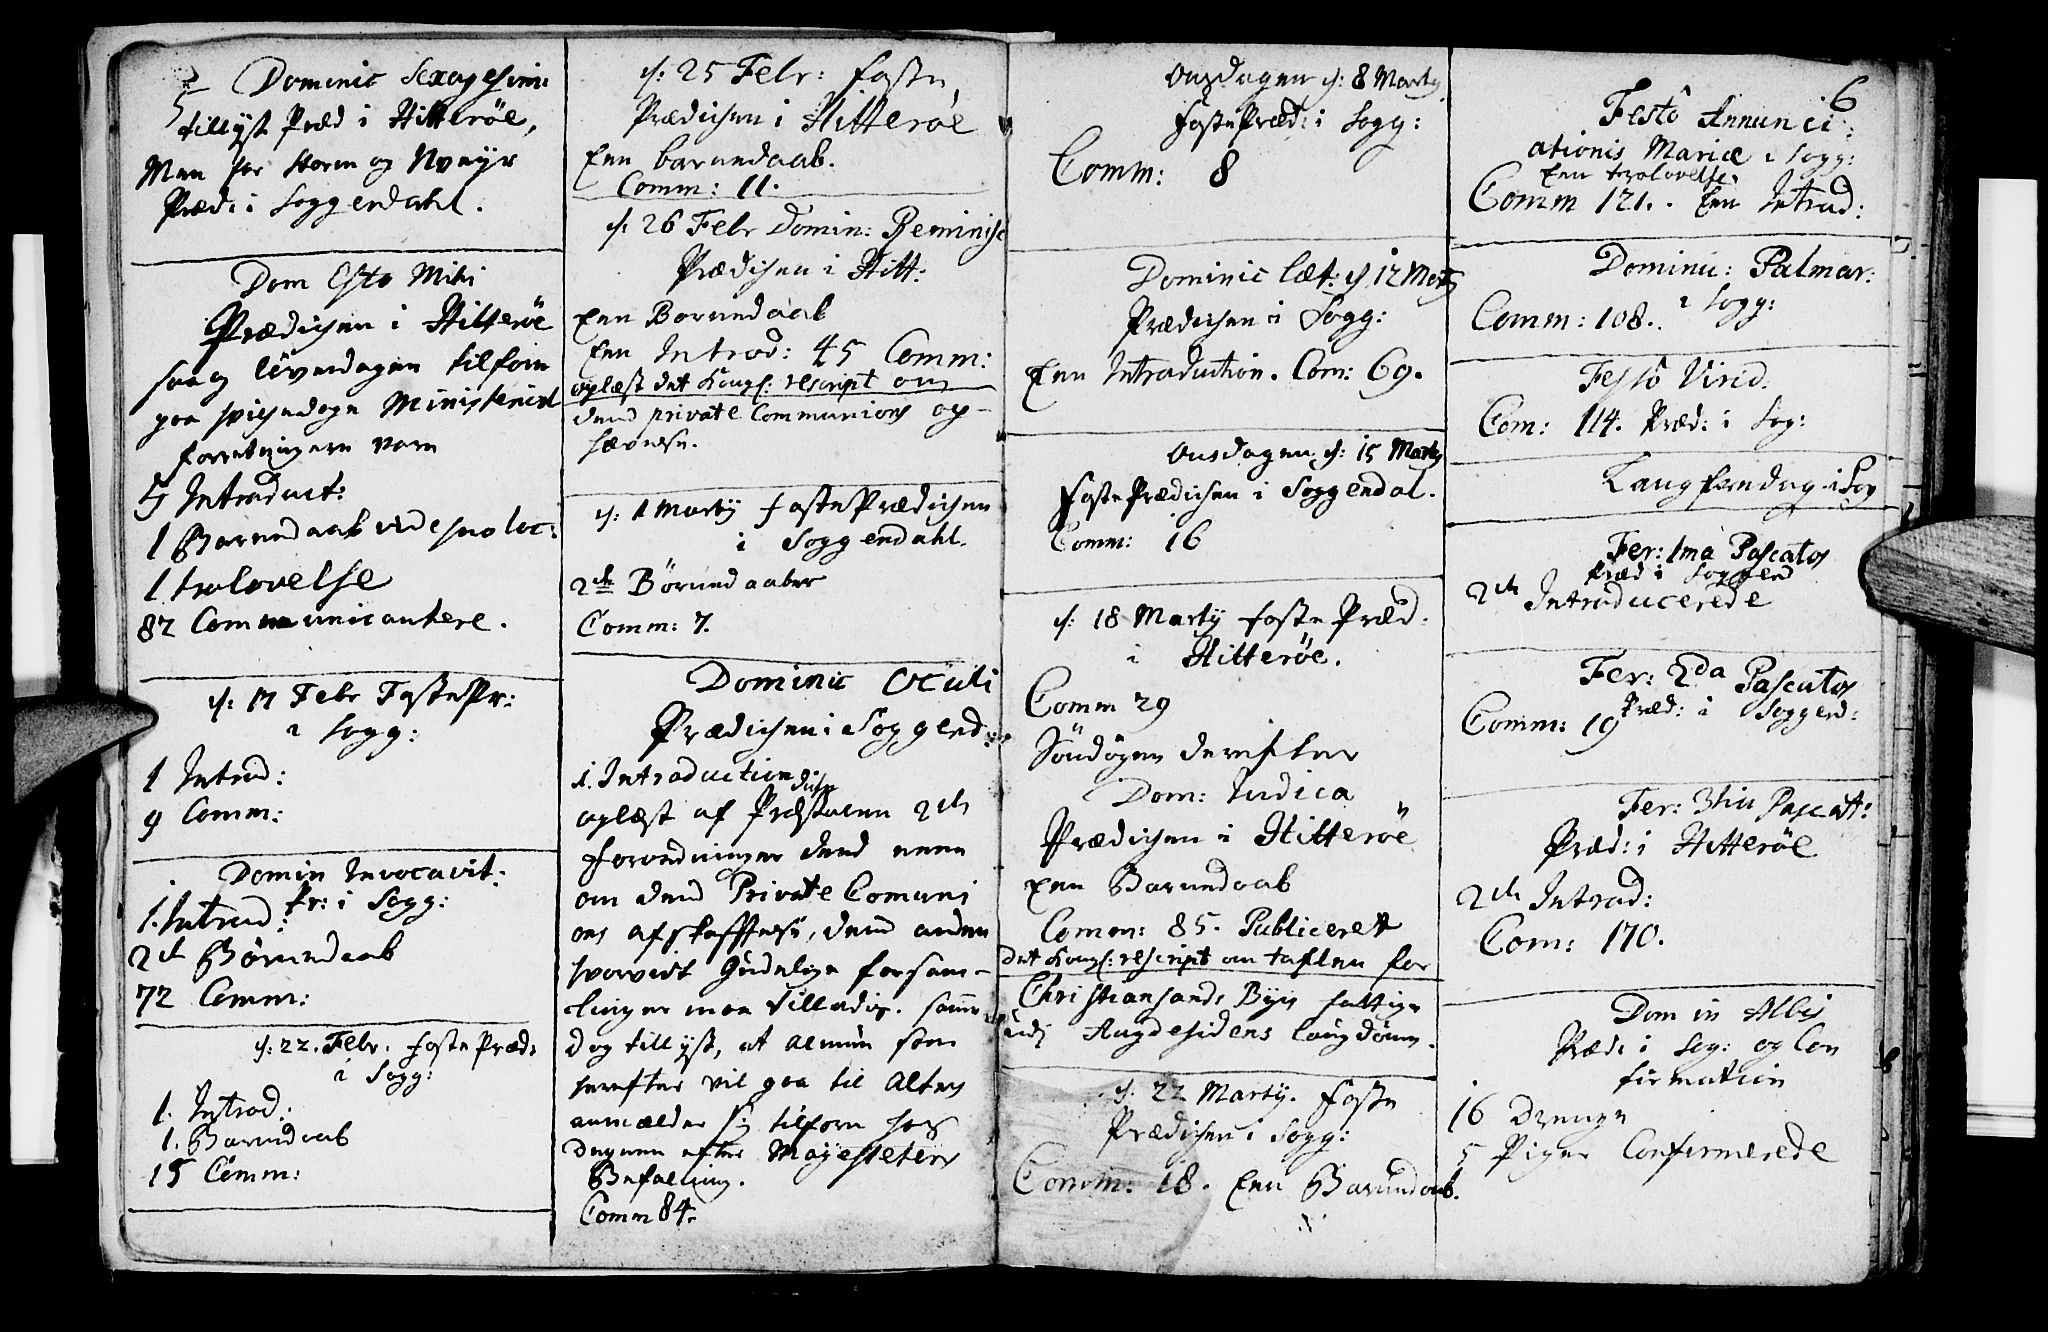 Dominic Sexagesim:
tillyst Præd i Hitterøe,
Men for storm og Uveyr
Præd: i Soggendahl.
Dom Esto Mihi
Prædichen i Hitterøe
saa og löverdagen tilforn
paa
Ministerial
forretningern varn
5 Introduct:
1 Barnedaab vide suo loc:
1 trolovelse
87 Communicantere.
d: 17 Febr FastePr:
i Sogg:
1 Introd:
9 Comm:
Domin Invocavit:
Pr: i Sogg:
1. Introd:
2de Börnedaab
72 Comm:
d: 22. Febr. faste Præd:
i Sogg:
1. Introd:
1. Barnedaab
15 Comm:
d: 25 Febr: faste
Prædichen i Hitterøe
Een barnedaab.
Comm: 11.
d: 26 Febr Domin: Reminisc
Prædichen i Hitt:
Een Barnedaab
Een Introd: 45 Comm:
oplæst det Kongl: rescript om
dend private Communions op-
hævelse.
d: 1 Martij fastePrædichen
i Soggendahl.
2de Börnedaaber
Comm: 7.
Dominic Oculi
Prædichen i Soggend:
1. Introduction
oplæst af Præstolen disse 2de
forordninger dend eene
om dend Private Comuni
ons afskaffelse, dend anden
hvorvidt Gudelige forsam-
linger maa tilladis. samme
dag tillyst, at almuen som
herefter vil gaa til Alters
anmælder sig tilforn hos
degnen efter Majestetens
Befaling.
Comm 84.
Onsdagen d: 8 Martij
fastePræd: i Sogg:
Comm: 8
Dominic læt: d 12 Martij
Prædichen i Sogg:
Een Introduction. Com: 69.
Onsdagen d: 15 Martij
fastePrædichen i Soggendal.
Comm: 16
d: 18 Martij faste Præd.
i Hitterøe.
Comm 29
Söndagen derefter
Dom: Judica
Prædichen i Hitterøe
Een Barnedaab
Comm: 85. Publiceret
det Kongl: rescript om taflen for
Christiansands Byes fattige
udj Augdesidens laugdömm.
d: 22 Martij. faste
Prædichen i Sogg:
Comm: 18. Een Barnedaab.
6
Festo Annunci:
ationis Mariæ i Sogg:
Een trolovelse.
Comm 121. Een Introd:
Dominic: Palmar:
i Sogg:
Comm: 108.
Festo Virid:
Com: 114. Præd: i Sog:
Langfredag i Sog
Fer: 1ma Pascatos
Præd i Soggend
2de Introducerede
Fer: 2da Pascatos
Præd: i Soggend:
Comm: 19
Fer: 3tia Pascat:
Præd: i Hitterøe
2de Introd:
Com: 170.
Dom in Albis
Præd: i Sog: og Con
firmation
16 Drenge
5 Piger Confirmerede